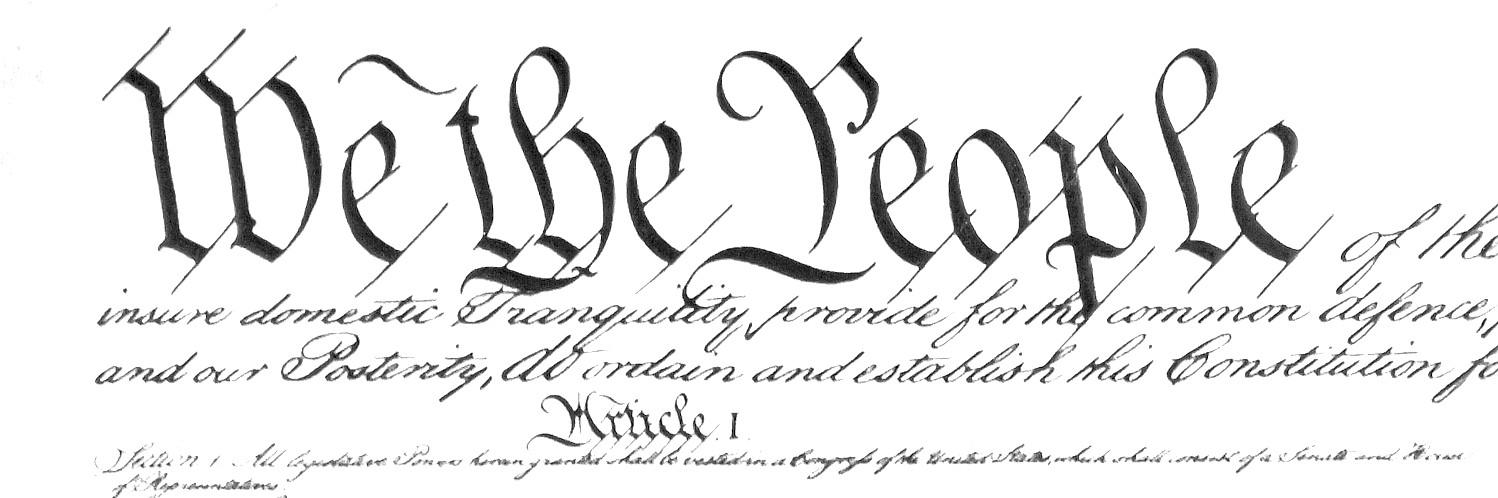 We the People of the
insure domestic Tranquility, provide for the common defence,
and our Posterity, do ordain and establish this Constitution fo
Article I
Section 1 All legislative Powers herein granted shall be vested in a Congress of the United States, which shall consist of a Senate and House
of Representatives.